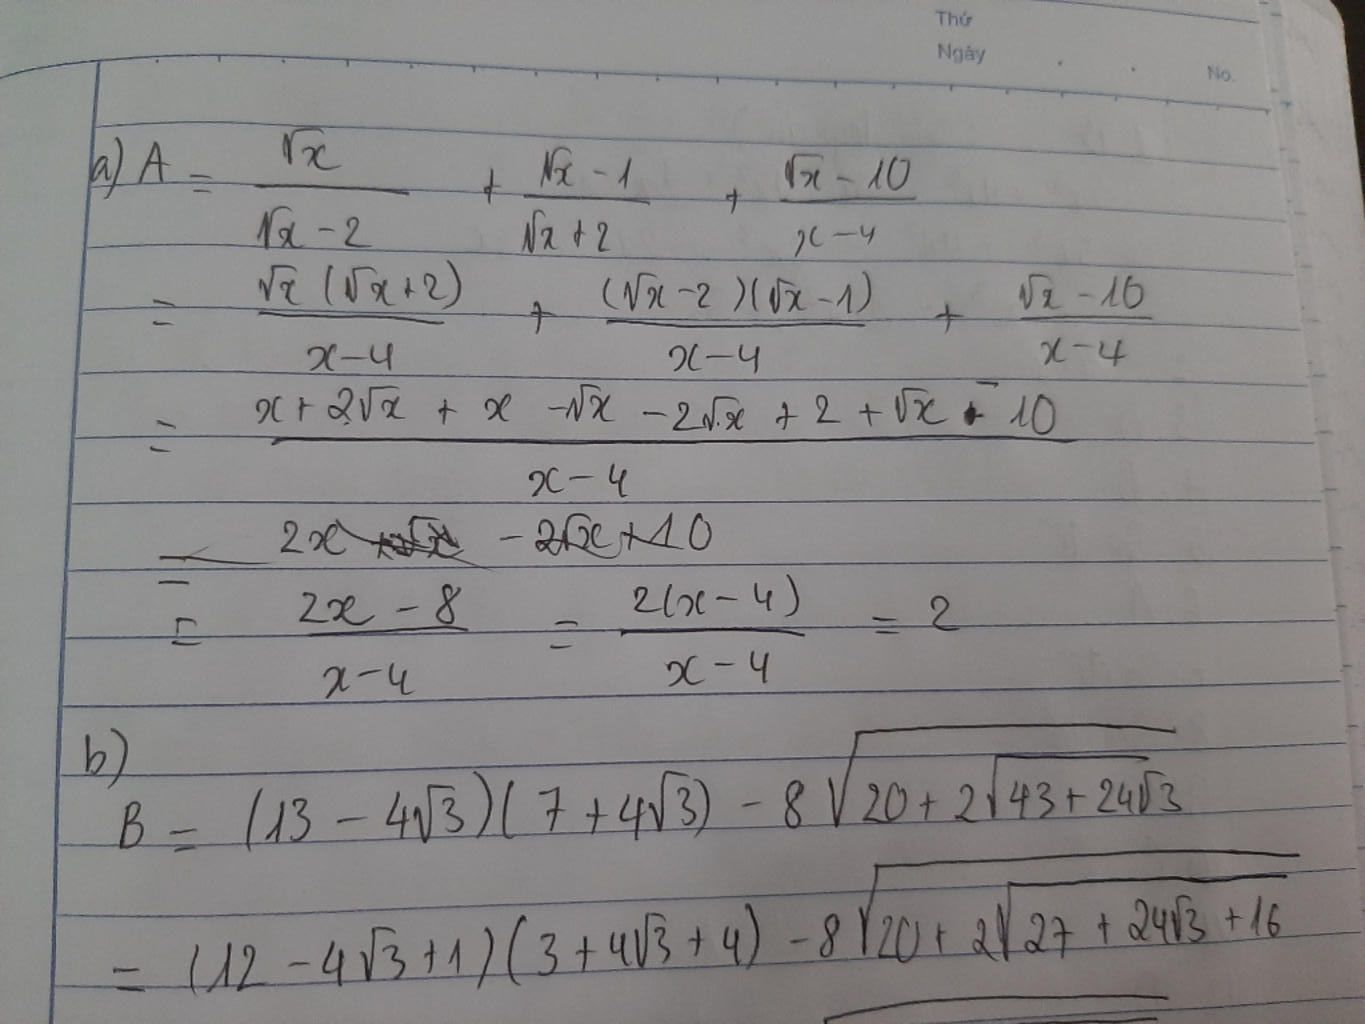 Thứ
Ngày
No.
a) A = √x / (√x - 2) + (√x - 1) / (√x + 2) + (√x - 10) / (x - 4)
= √x (√x + 2) / (x - 4) + (√x - 2)(√x - 1) / (x - 4) + (√x - 10) / (x - 4)
= (x + 2√x + x - √x - 2√x + 2 + √x - 10) / (x - 4)
= 2x - 2√x + 10
= (2x - 8) / (x - 4) = 2(x - 4) / (x - 4) = 2
b)
B = (13 - 4√3)(7 + 4√3) - 8√(20 + 2√(43 + 24√3))
= (12 - 4√3 + 1)(3 + 4√3 + 4) - 8√(20 + 2√(27 + 24√3 + 16))